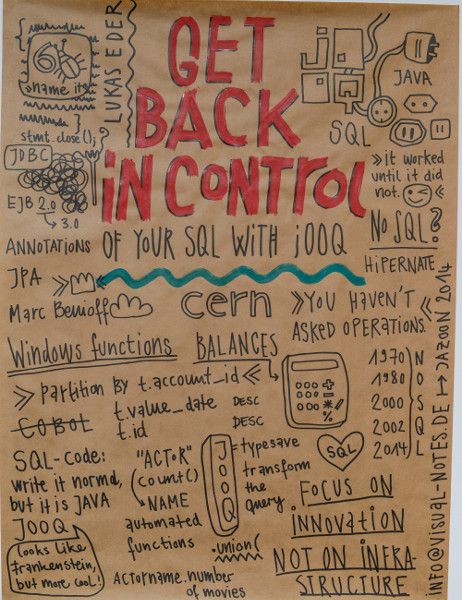 GET
BACK
IN CONTROL
OF YOUR SQL WITH jOOQ
LUKAS EDER
6
name it
stmt.close();
JDBC
?
EJB 2.0
3.0
ANNOTATIONS
JPA
Marc Benioff
jO
OQ
JAVA
SQL
»it worked
until it did
not.
No SQL?
HiPERNATE
cern
»YOU HAVEN'T«
ASKED OPERATIONS.
Windows functions
BALANCES
»partition by t.account_id«
COBOL
t.value_date DESC
t.id DESC
1970 N
1980 O
2000 S
2002 Q
2014 L
SQL
SQL-CODE:
write it normal,
but it is JAVA
JOOQ
looks like
Frankenstein,
but more cool!
"ACTOR"
(count()
NAME
automated
functions
JOOQ
= typesave
transform
the
query
.union(
ACTORname.number
of movies
FOCUS ON
INNOVATION
NOT ON INFRA-
STRUCTURE
INFO@VISUAL-NOTES.DE JAZOON 2014